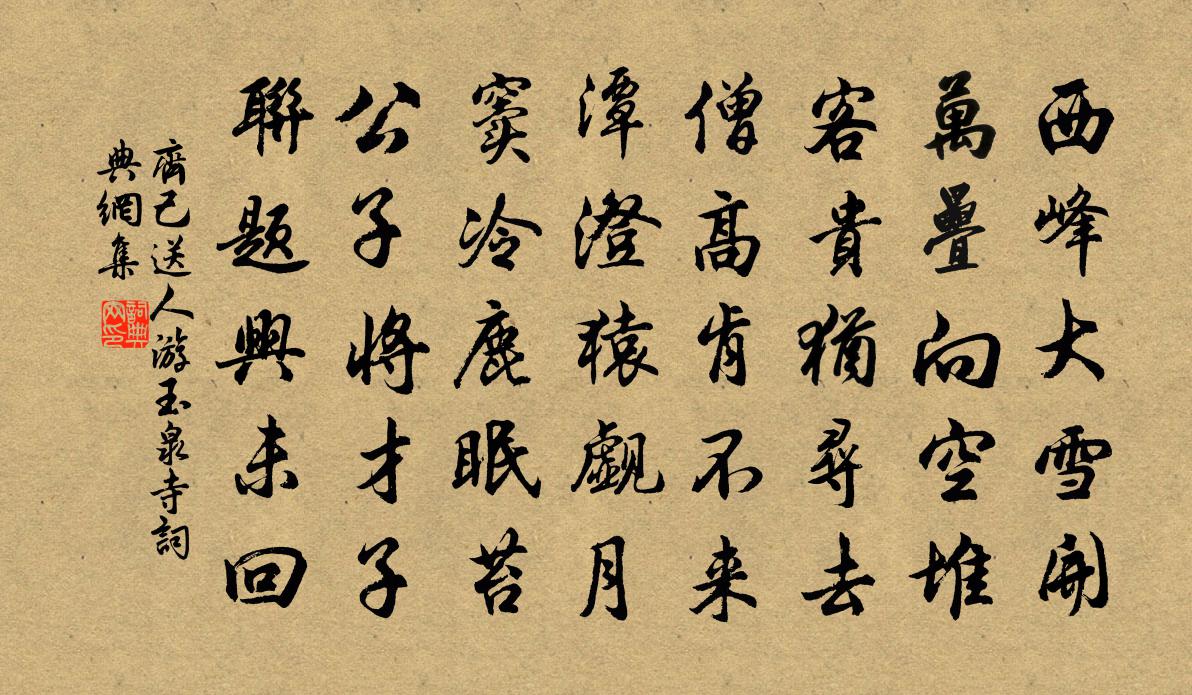 西峰大雪開
萬疊向空堆
客貴猶尋去
僧高肯不来
潭澄猿觑月
窦冷鹿眠苔
公子將才子
聯題興未回
齊己送人游玉泉寺詞
典網集
詞典
网印